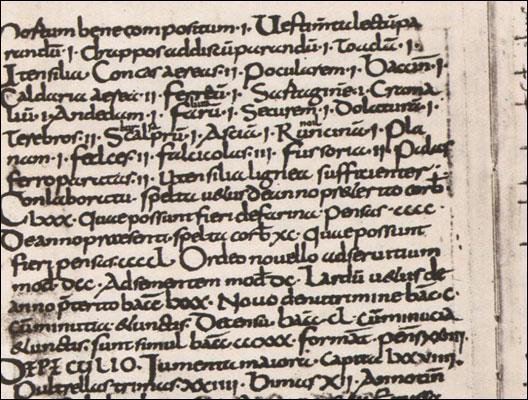 nostrum bene compositum · I · Uestim̄ta lectū pa
randū · I · drappos addiscū parandū · I · Toaclū · I ·
Utensilia · Concas aereas · II · Pocularem · I · Baccin̄ · I ·
Caldaria aerea · II · Ferreū · I · Sartagine · I · Crama
liū · I · Andedam · I · Farū · I · Securem · I · Dolaturā · I ·
Terebros · II · Scalprū · I · Ascia · I · Runcinā · I · Pla
nam · I · falces · II · falciculas · III · Fussoria · II · Palas
ferro paratas · II · Utensilia lignea sufficienter ·
Conlaboratu · spelta uetus de anno preterito corb̄
Lxxx · Quae possunt fieri de farina · Pensas · cccc ·
De anno praesenti · spelta corb̄ xc · Quae possunt
fieri pensas · ccccL · Ordeo nouello ad seruitium
mod̄ · Dcc · Ad sementem mod̄ Dc · Lardū uetus de
anno p̄terito bacc̄ Lxxx · Nouo de nutrimine bac̄ c ·
cū minutia & unctis · De censu · bac̄ · cL · cū minucia
& unctis · sunt simul bac̄ · cccxxx · format̄ · pens̄
DE PECULIO · Iumenta maiora · Capita Lxxuiii ·
Pultrellas trimas · xxiiii · Bimas · xii · Annotin̄